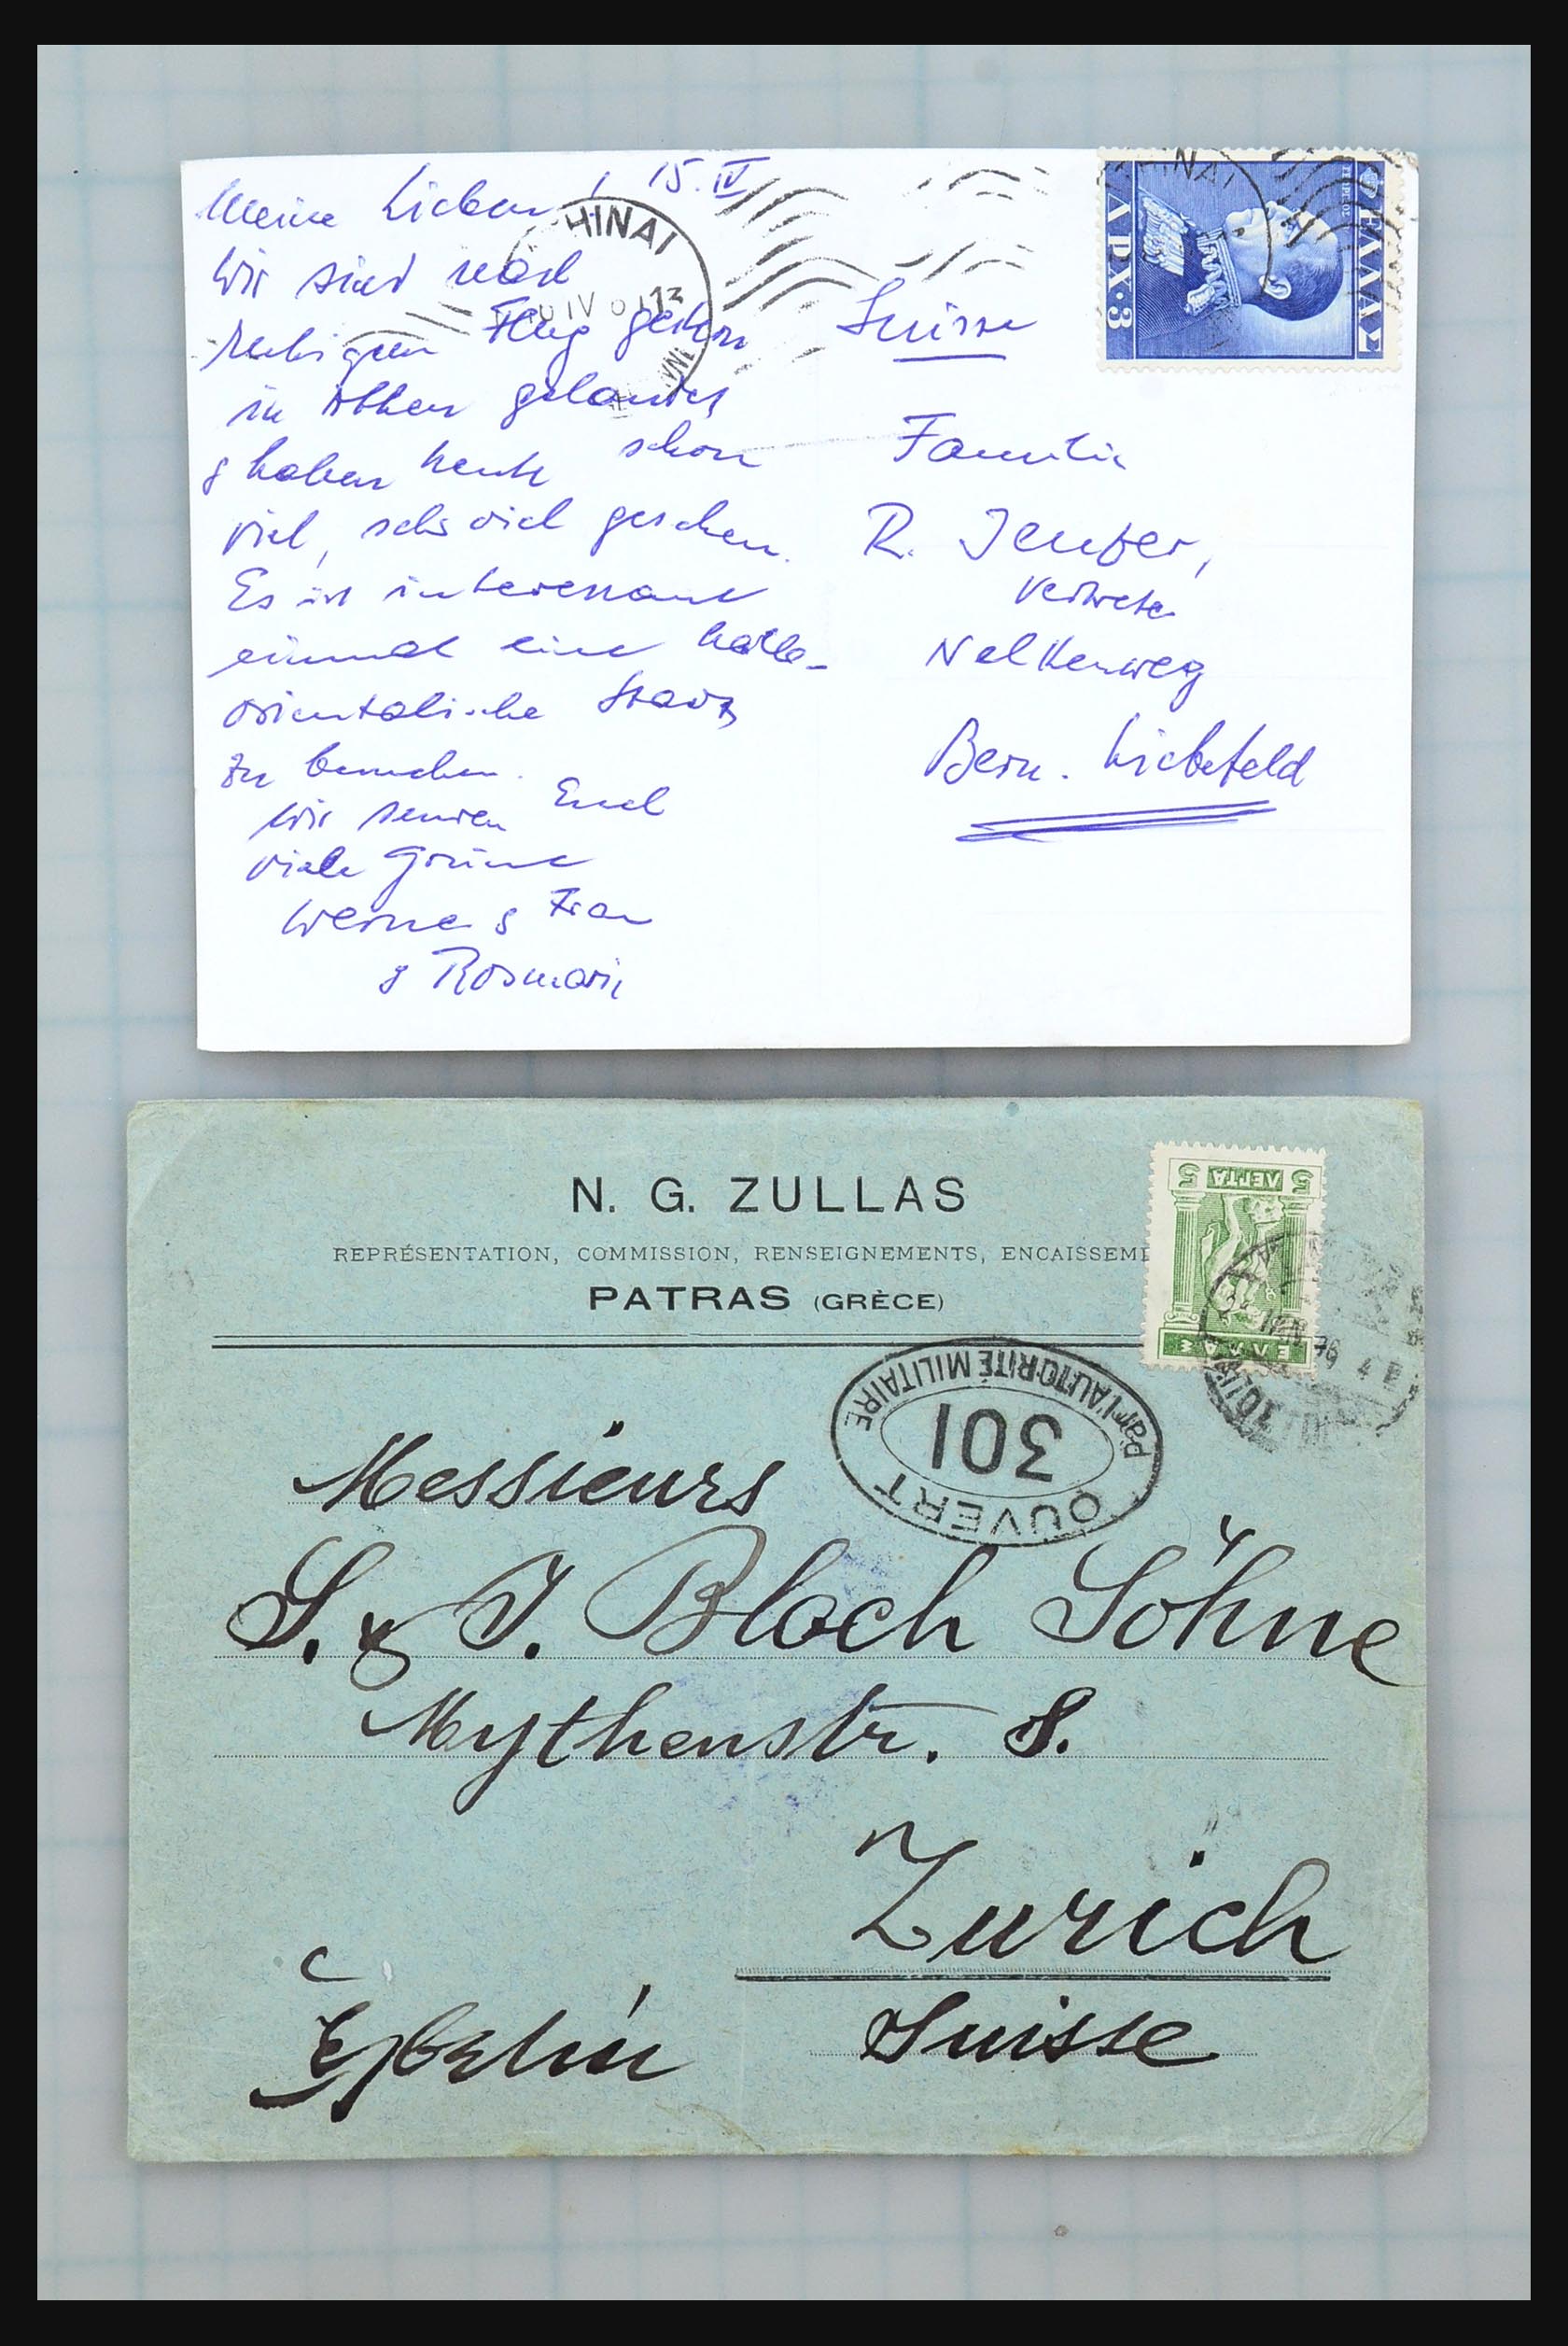 15. IV
Meine Lieben,
Wir sind nach
ruhigem Flug gestern
in Athen gelandet
& haben heute schon
viel, sehr viel gesehen.
Es ist interessant
einmal eine halb-
orientalische Stadt
zu besuchen.
Wir senden Euch
viele Grüsse
Werner & Frau
& Rosmarie
HINAI
IV
13
Suisse
Familie
R. Jenzer,
Vertreter
Nelkenweg
Bern. Liebefeld
HINAI
ΕΛΛΑΣ
ΔΡΧ·3
N. G. ZULLAS
REPRÉSENTATION, COMMISSION, RENSEIGNEMENTS, ENCAISSEME
PATRAS (GRÈCE)
5 ΛΕΠΤΑ 5
ΕΛΛΑΣ
OUVERT
301
Par l'AUTORITÉ MILITAIRE
Messieurs
S. & J. Bloch Söhne
Mythenstr. 8.
Zurich
Suisse